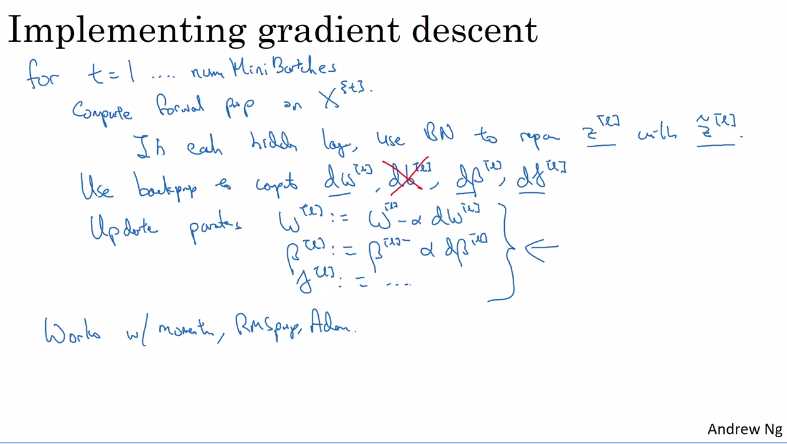 Implementing gradient descent
for t = 1 .... numMiniBatches
Compute forward prop on X^{t}.
In each hidden layer, use BN to replace z^[l] with z̃^[l].
Use backprop to compute dw^[l], db^[l], dβ^[l], dγ^[l]
Update params W^[l] := W^[l] - α dW^[l]
β^[l] := β^[l] - α dβ^[l]
γ^[l] := ....
Works w/ momentum, RMSprop, Adam.
Andrew Ng